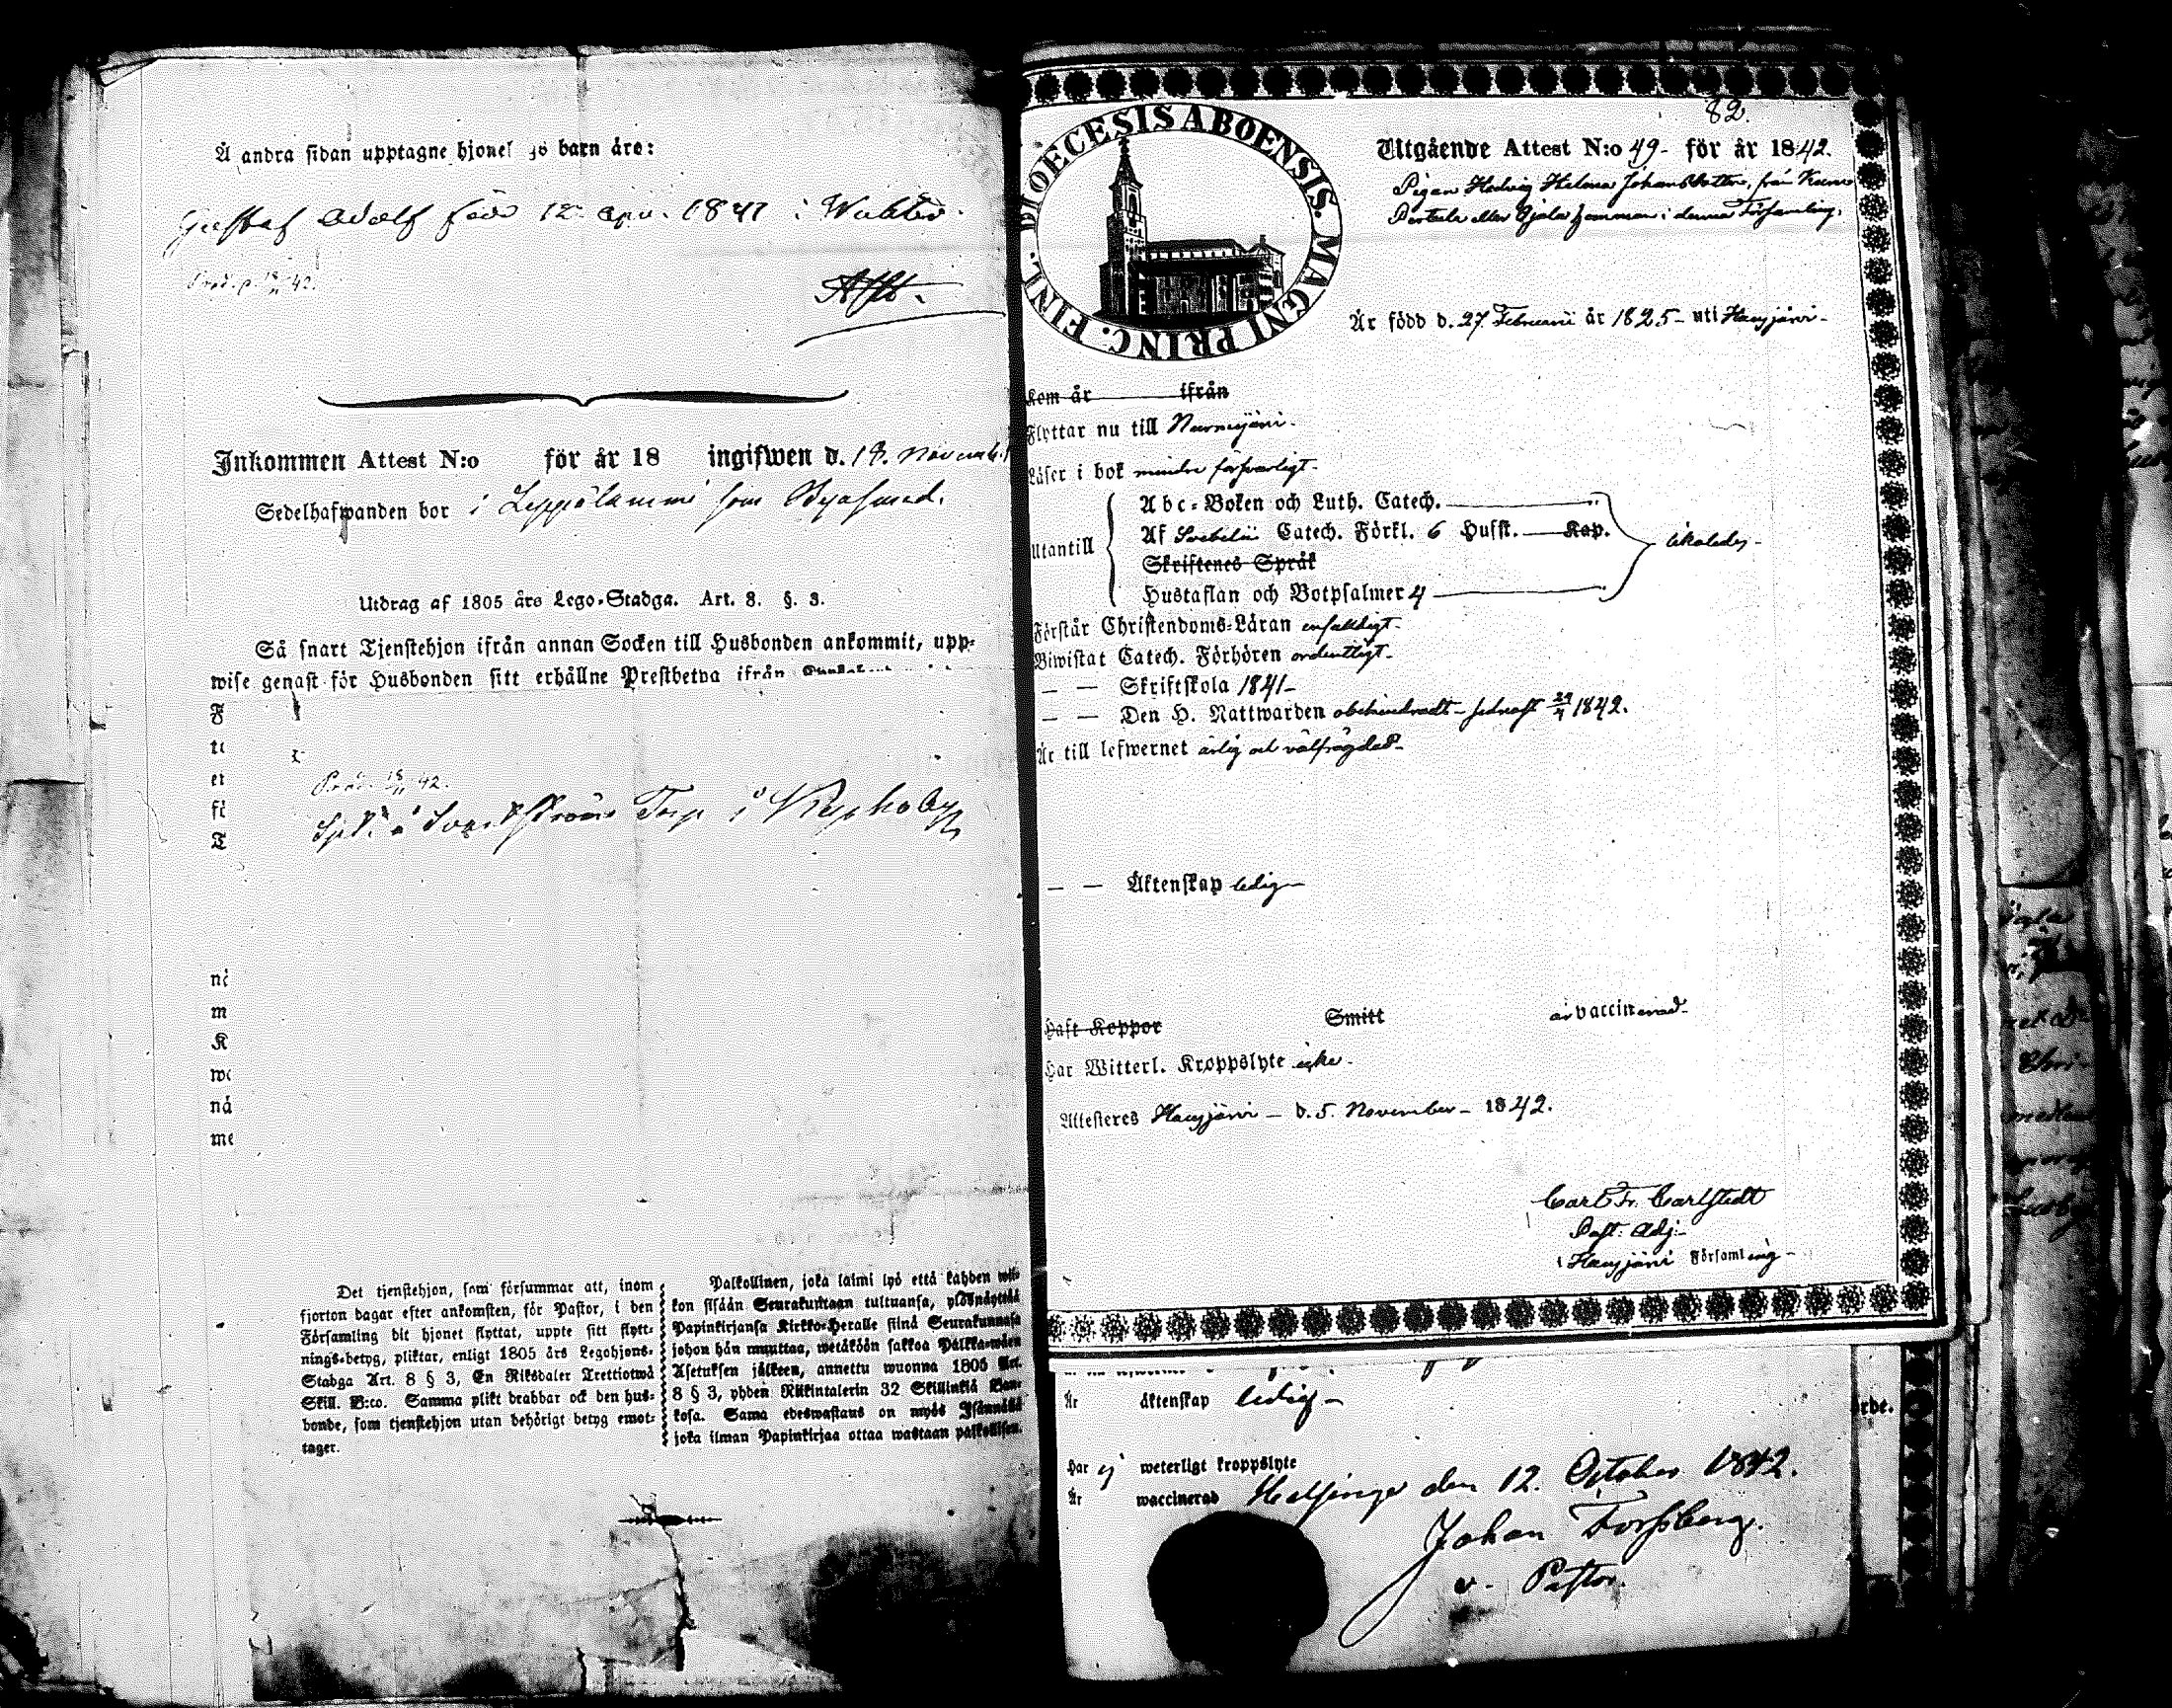 Å andra sidan upptagne hjonel barn äro:
Gustaf Adolf född 12 apr. 1841 i
Inkommen Attest N:o för år 18 ingifwen d. 18. Novemb.
Sedelhafwanden bor i som
Utdrag af 1805 års Lego-Stadga. Art. 8. §. 3.
Så snart Tjenstehjon ifrån annan Socken till Husbonden ankommit, upp-
wise genast för Husbonden sitt erhållne Prestbetyg ifrån
F
te
er
fi
T
Pred. 18/11 42.
Torp i
nå
m
K
we
nå
me
Det tjenstehjon, som försummar att, inom
fjorton dagar efter ankomsten, för Pastor, i den
Församling dit hjonet flyttat, uppte sitt flytt-
nings-betyg, pliktar, enligt 1805 års Legohjons-
Stadga Art. 8 § 3, En Riksdaler Trettiotwå
Skill. B:co. Samma plikt drabbar ock den hus-
bonde, som tjenstehjon utan behörigt betyg emot-
tager.
Palkollinen, joka laimi lyö että kahden wii-
kon sisään Seurakuntaan tultuansa, ylösnäyttää
Papinkirjansa Kirkko-Herralle siinä Seurakunnasa
johon hän muuttaa, wetäköön sakkoa Palkka-wäen
Asetuksen jälkeen, annettu wuonna 1805 Art.
8 § 3, yhden Riikintalerin 32 Skillinkiä Ban-
kosa. Sama edeswastaus on myös Isännällä
joka ilman Papinkirjaa ottaa wastaan palkollisen.
82.
DIOECESIS ABOENSIS. MAGNI PRINC. FINL.
Utgående Attest N:o 49- för år 1842.
Pigan Hedvig Helena Johansdotter, från
eller i denna Församling,
Är född d. 27 Februarii år 1825- uti Hausjärvi-
Kom år ifrån
Flyttar nu till Nurmijärvi-
Läser i bok mindre försvarligt-
Utantill
Abc-Boken och Luth. Catech.
Af Svebelii Catech. Förkl. 6 Hufst. Kap.
Skriftenes Språk
Hustaflan och Botpsalmer 4
likaledes-
Förstår Christendoms-Läran enfaldigt
Biwistat Catech. Förhören ordentligt-
— — Skriftskola 1841-
— — Den H. Nattwarden obehindradt- sednast 1842.
Är till lefwernet ärlig och välfrägdad-
— — Äktenskap ledig-
Haft Koppor Smitt är vaccinerad-
Har Witterl. Kroppslyte icke-
Attesteres Hausjärvi- d. 5. November- 1842.
Carl Fr. Carlstedt
Past. Adj.
i Hausjärvi Församling-
Är äktenskap ledig-
Har ej weterligt kroppslyte
Är waccinerad Helsinge den 12. October 1842.
Johan Forssberg.
v. Pastor.